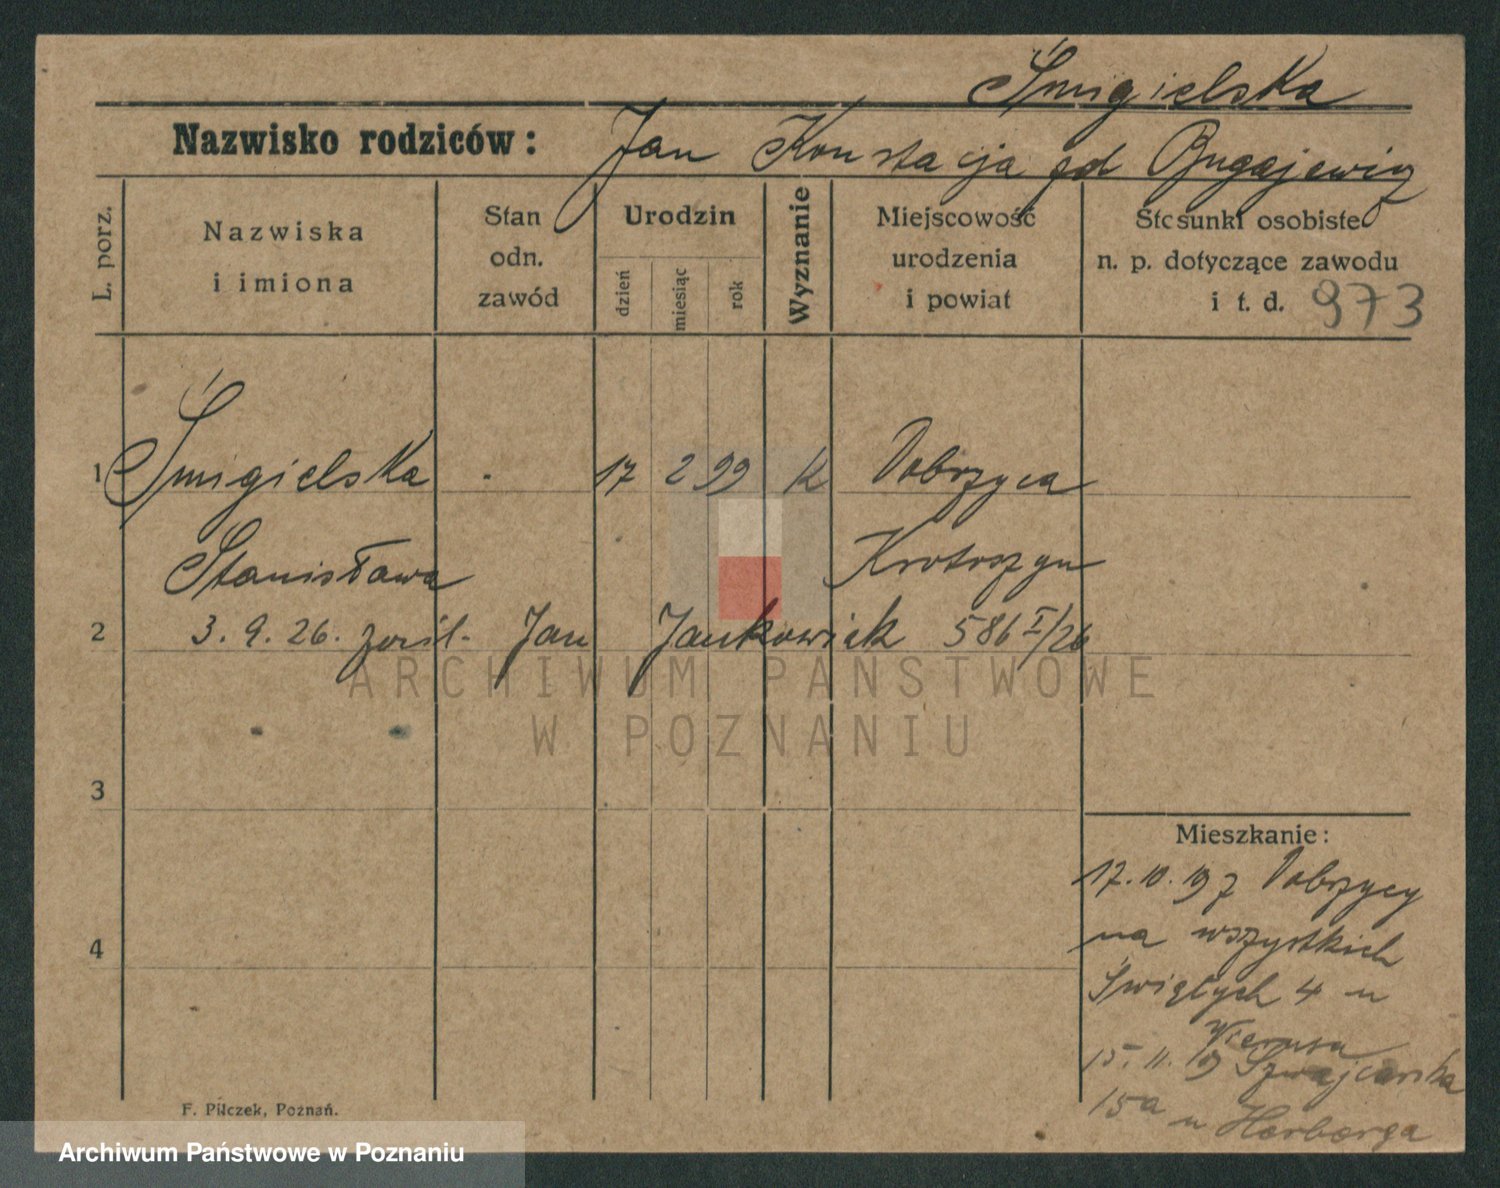 Śmigielska
Nazwisko rodziców: Jan Konstacja gd Bugajewicz
L. porz.
Nazwiska
i imiona
Stan
odn.
zawód
Urodzin
dzień
miesiąc
rok
Wyznanie
Miejscowość
urodzenia
i powiat
Stosunki osobiste
n. p. dotyczące zawodu
i t. d. 973
1 Śmigielska - 17 2 99 K Dobrzyca
Stanisława Krotoszyn
2 3. 9. 26. Jan Jankowiak 586 I/26
ARCHIWUM PAŃSTWOWE
W POZNANIU
3
4
Mieszkanie:
17.10.19 z Dobrzycy
na wszystkich
Świętych 4 u
15.11.19 Szwajcarska
15a u Herberga
F. Pilczek, Poznań.
Archiwum Państwowe w Poznaniu